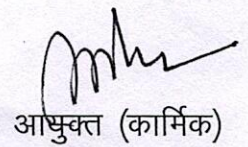 आयुक्त (कार्मिक)